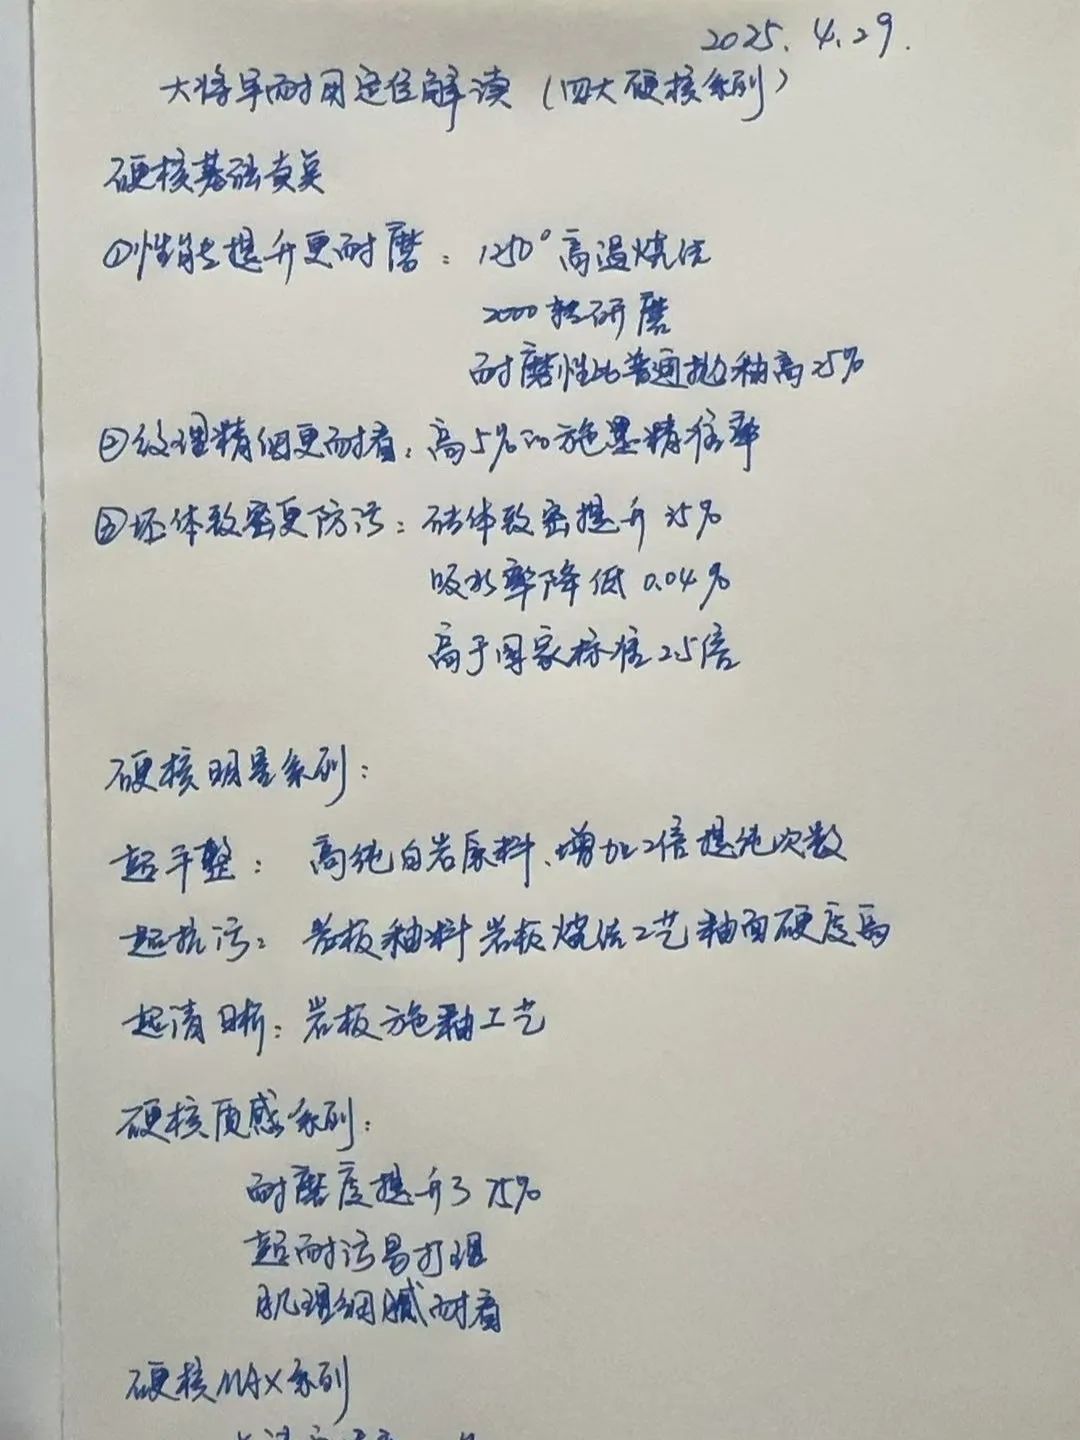 2025.4.29.
大将军耐用定位解读（四大硬核系列）
硬核基础夯实
①性能提升更耐磨：1250°高温烧结
2000转研磨
耐磨性比普通抛釉高25%
②纹理精细更耐看：高5%的施墨精准率
③坯体致密更防污：砖体致密提升25%
吸水率降低0.04%
高于国家标准2.5倍
硬核明星系列：
超平整：高纯白岩原料、增加2倍提纯次数
超抗污：岩板釉料岩板烧结工艺釉面硬度高
超清晰：岩板施釉工艺
硬核质感系列：
耐磨度提升了75%
超耐污易打理
肌理细腻耐看
硬核MAX系列